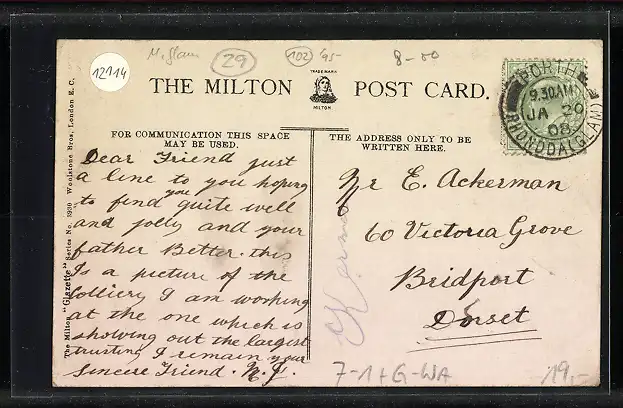 M. Glam
29
102
95
8-00
12114
THE MILTON
TRADE MARK
MILTON
POST CARD.
PORTH
9.30AM
JA 20
08
RHONDDA(GLAM)
FOR COMMUNICATION THIS SPACE
MAY BE USED.
THE ADDRESS ONLY TO BE
WRITTEN HERE.
The Milton "Glazette" Series No. 1930 Woolstone Bros., London E. C.
Dear Friend just
a line to you hoping
to find you quite well
and jolly and your
father Better. this
Is a picture of the
Colliery I am working
at the one which is
showing out the largest
trusting I remain your
sincere Friend. N. J.
Mr E. Ackerman
60 Victoria Grove
Bridport
Dorset
7-1+G-WA
19,-